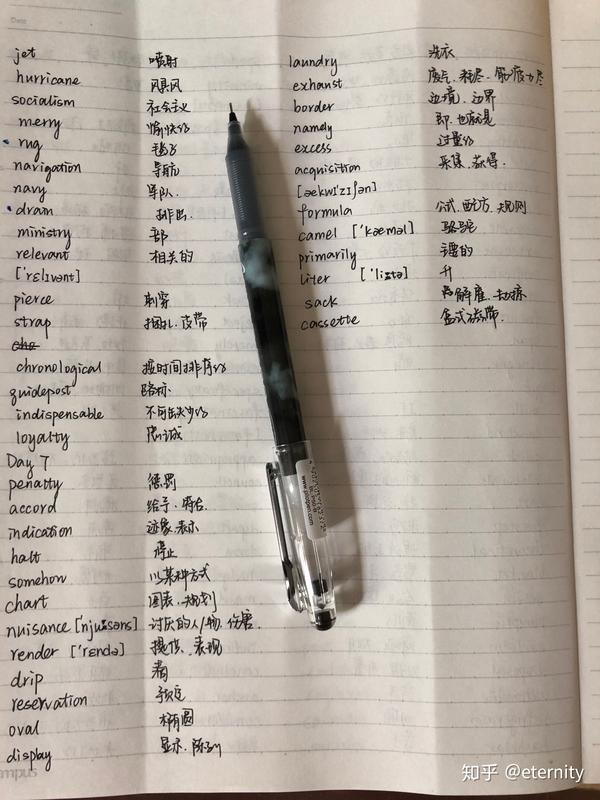 jet 喷射
hurricane 飓风
socialism 社会主义
merry 愉快的
rug 毛毯
navigation 导航
navy 军队
drain 排出
ministry 部
relevant 相关的
['rɛlɪvənt]
pierce 刺穿
strap 捆扎、皮带
chronological 按时间排序的
guidepost 路标
indispensable 不可缺少的
loyalty 忠诚
Day 7
penalty 惩罚
accord 给予、符合
indication 迹象、表示
halt 停止
somehow 以某种方式
chart 图表、规划
nuisance [njuːsəns] 讨厌的人/物、伤害
render ['rɛndə] 提供、表现
drip 滴
reservation 预定
oval 椭圆
display 显示、陈列
laundry 洗衣
exhaust 废气、耗尽、筋疲力尽
border 边境、边界
namely 即、也就是
excess 过量的
acquisition 采集、获得
[ækwɪ'zɪʃən]
formula 公式、配方、规则
camel ['kæməl] 骆驼
primarily 主要的
liter ['liːtə] 升
sack 解雇、劫掠
cassette 盒式磁带
campus
知乎 @eternity